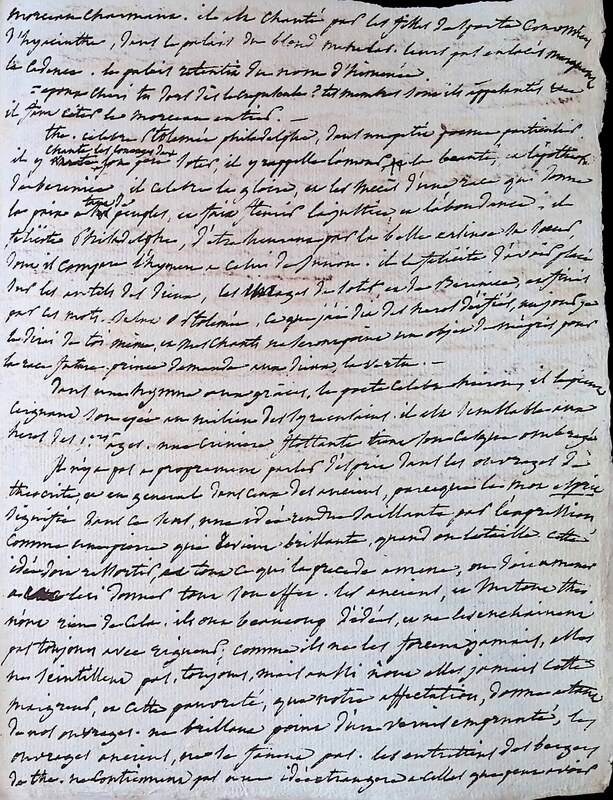 morceau charmant. il est chanté par les filles de sparte
d'hyacinthe, dans le palais du blond menelas. leurs pas enlacés marquent
la cadence. le palais retentit du nom d'himenée.
- epoux cheri tu dors dès le crepuscule? tes membres sont ils appesantis &c
il faut citer le morceau entier. —
the. celebre Ptolemée philadelphe, dans un petit poeme particulier
il y chante les louanges de Soter, il y rappelle l'amour, la beauté, et l'apotheose
de berenice. il celebre la gloire, et les succès d'une race qui donne
la paix a tant de peuples, et fait fleurir la justice et l'abondance. il
felicite Philadelphe, d'etre heureux par la belle arsinoe sa soeur
dont il compare l'hymen a celui de Junon. il le felicite d'avoir placé
sur les autels des dieux, les images de Soter et de Berenice, et finit
par ces mots. Salut o Ptolemée, ce que j'ai dit des heros deifiés,
le dirai de toi meme, et mes chants ne seront point un objet de mépris pour
la race future. prince demande aux dieux, la vertu. —
Dans un hymne aux graces, le poete celebre hieron, il le peint
ceignant son epée au milieu des syracusains. il est semblable aux
heros des ages. une criniere flottante tient son casque ombragé
Il n'y a pas a proprement parler d'esprit dans les ouvrages de
theocrite, et en general dans ceux des anciens, parce que le mot esprit
signifie dans ce sens, une idée rendue saillante par l'expression
comme une pierre qui devient brillante, quand on la taille. cette
idée doit ressortir, et tout ce qui la precede amene, ou doit amener
a lui donner tout son effet. les anciens, et surtout the.
n'ont rien de cela. ils ont beaucoup d'idées, et ne les enchainent
pas toujours avec rigueur; comme ils ne les forcent jamais, elles
ne scintillent pas, toujours, mais aussi n'ont elles jamais cette
maigreur, et cette pauvreté, que notre affectation, donne a tant
de nos ouvrages. ne brillant point d'un vernis emprunté, les
ouvrages anciens, ne se fanent pas. les entretiens des bergers
de the. ne contiennent pas une idée etrangere a celles que peuvent avoir